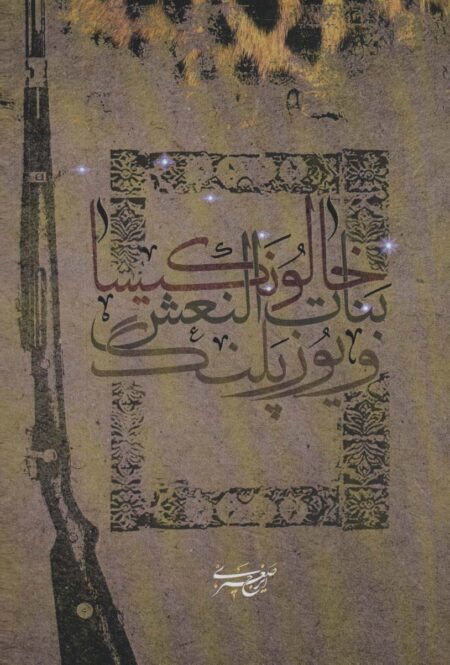 خالو نَکیسا
بَنات النعش
و یوزپَلنگ
ایرج صغیری